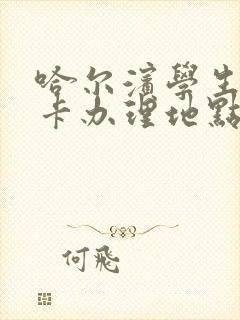 哈尔濱學生
卡办理地點
何飛